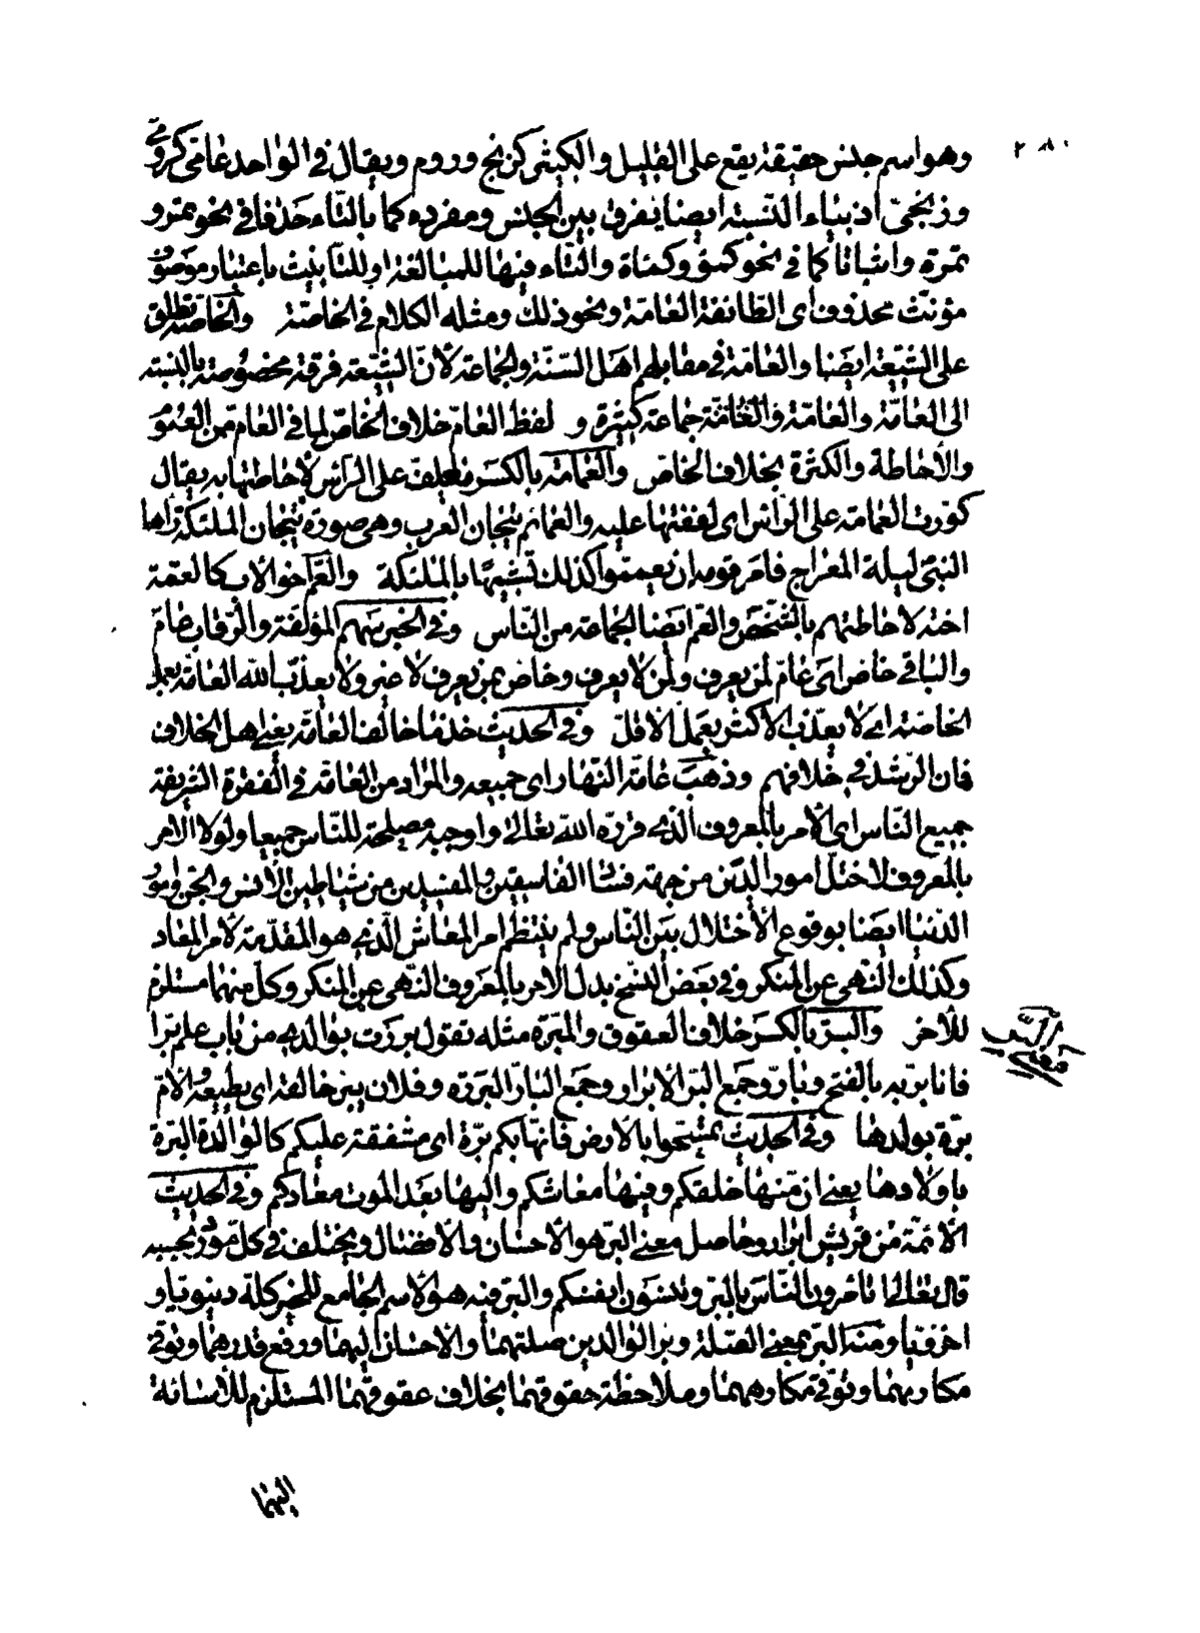 ٢٨٠
وهو اسم جنس حقيقة يقع على القليل والكثير كزنج وروم ويقال في الواحد عامّى كرومىّ
وزنجىّ اذ بياء النسبة ايضا يفرق بين الجنس ومفرده كما بالتّاء حذفا في نحو تمر و
تمرة واثباتا كما في نحو كمؤ وكماة والتّاء فيها للمبالغة او للتانيث باعتبار موصوف
مؤنّث محذوف اى الطائفة العامّة ونحو ذلك ومثله الكلام في الخاصّة والخاصّة تطلق
على الشيّعة ايضا والعامّة في مقابلهم اهل السنّة والجماعة لانّ الشيّعة فرقة مخصوصة بالنسبة
الى العامّة والعامّة جماعة كثيرة و لفظ العامّ خلاف الخاصّ لما في العامّ من العموم
والاحاطة والكثرة بخلاف الخاصّ والعمامة بالكسر ما يلفّ على الرّأس لاحاطتها به يقال
كوّرت العمامة على الرأس اى لففتها عليه والعمائم تيجان العرب وهى صورة تيجان الملئكة راها
النبىّ ليلة المعراج فامر قومه ان يعمّموا كذلك تشبّها بالملئكة والعمّ اخو الاب كالعمّة
اخته لاحاطتهم بالشّخص والعمّ ايضا الجماعة من النّاس وفي الخبر سهم المؤلّفة والرّقاب عامّ
والباقى خاصّ اى عامّ لمن يعرف ولمن لا يعرف وخاصّ بمن يعرف لا غير ولا يعذّب الله العامّة بعمل
الخاصّة اى لا يعذّب الاكثر بعمل الاقلّ وفي الحديث خذ ما خالف العامّة يعنى اهل الخلاف
فان الرّشد في خلافهم وذهب عامّة النّهار اى جميعه والمراد من العامّة في الفقرة الشريفة
جميع النّاس اى الامر بالمعروف الذى قرّره الله تعالى واوجبه مصلحة للنّاس جميعا ولولا الامر
بالمعروف لاختلّ امور الدّين من جهة الفاسقين والمفسدين من شياطين الانس والجنّ وامور
الدّنيا ايضا بوقوع الاختلال بين النّاس ولم ينتظم امر المعاش الّذى هو المقدّمة لامر المعاد
وكذلك النّهى عن المنكر وفي بعض النّسخ بدل الامر بالمعروف النّهى عن المنكر وكلّ منهما مستلزم
للاخر والبرّ بالكسر خلاف العقوق والمبرّة مثله تقول بررت بوالدى من باب علم برّا
فانا برّ به بالفتح وبارّ وجمع البرّ الابرار وجمع البارّ البررة وفلان يبرّ خالقه اى يطيعه والامّ
برّة بولدها وفي الحديث تمسّحوا بالارض فانّها بكم برّة اى مشفقة عليكم كالوالدة البرّة
باولادها يعنى ان منها خلقكم وفيها معاشكم واليها بعد الموت معادكم وفي الحديث
الائمّة من قريش ابرار وحاصل معنى البرّ هو الاحسان والافضال ويختلف في كلّ مورد بحسبه
قال تعالى اتامرون النّاس بالبرّ وتنسون انفسكم والبرّ فيه هو الاسم الجامع للخير كلّه دينويّا و
اخرويّا ومنه البرّ بمعنى الصّلة وبرّ الوالدين صلتهما والاحسان اليهما ورفع قدرهما وتوقّى
مكارههما وملاحظة حقوقهما بخلاف عقوقهما المستلزم للاسائة
البرّ
اليهما